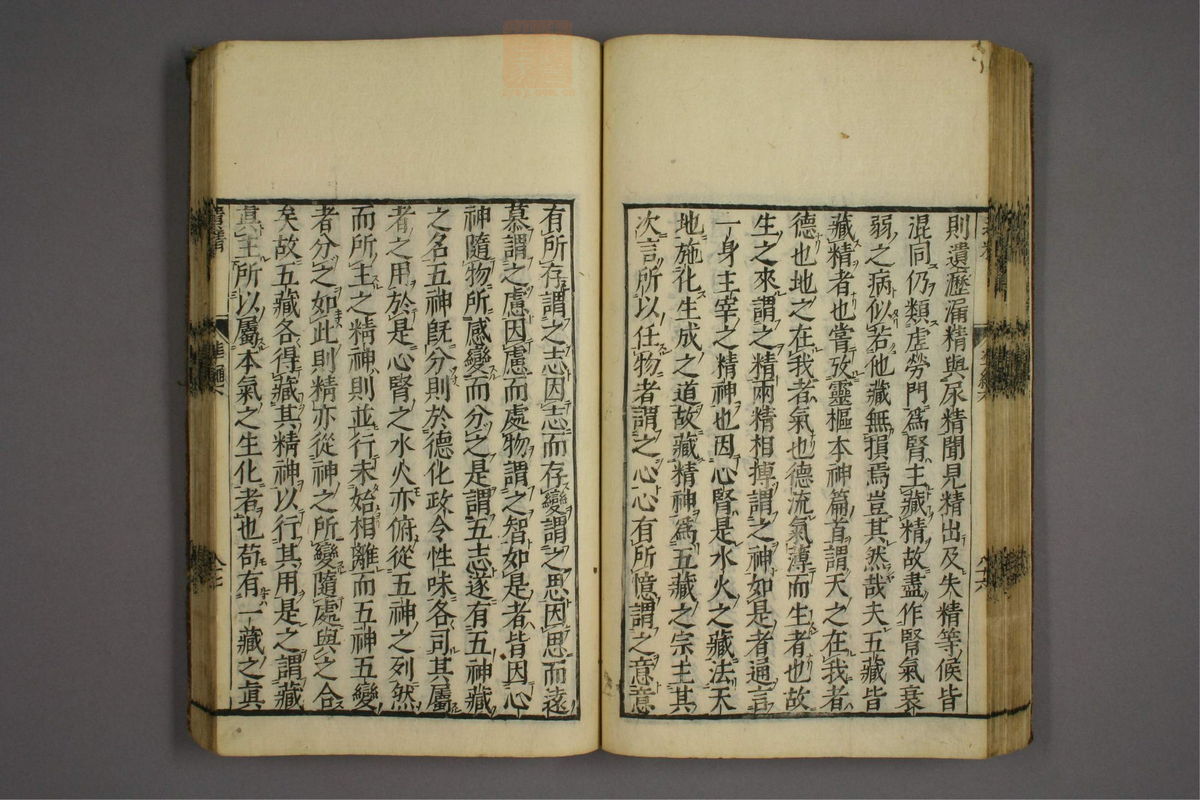 則遺瀝漏精與尿精聞見精出及失精等候皆
混同仍類虛勞門爲腎主藏精故盡作腎氣衰
弱之病似若他藏無損焉豈其然哉夫五藏皆
藏精者也嘗攷靈樞本神篇首謂天之在我者
德也地之在我者氣也德流氣薄而生者也故
生之來謂之精兩精相摶謂之神如是者通言
一身主宰之精神也因心腎是水火之藏法天
地施化生成之道故藏精神爲五藏之宗主其
次言所以任物者謂之心心有所憶謂之意意
有所存謂之志因志而存變謂之思因思而遠
慕謂之慮因慮而處物謂之智如是者皆因心
神隨物所感變而分之是謂五志遂有五神藏
之名五神旣分則於德化政令性味各司其屬
者之用於是心腎之水火亦俯從五神之列然
而所主之精神則並行未始相離而五神五變
者分之如此則精亦從神之所變隨處與之合
矣故五藏各得藏其精神以行其用是之謂藏
眞主所以屬本氣之生化者也苟有一藏之眞